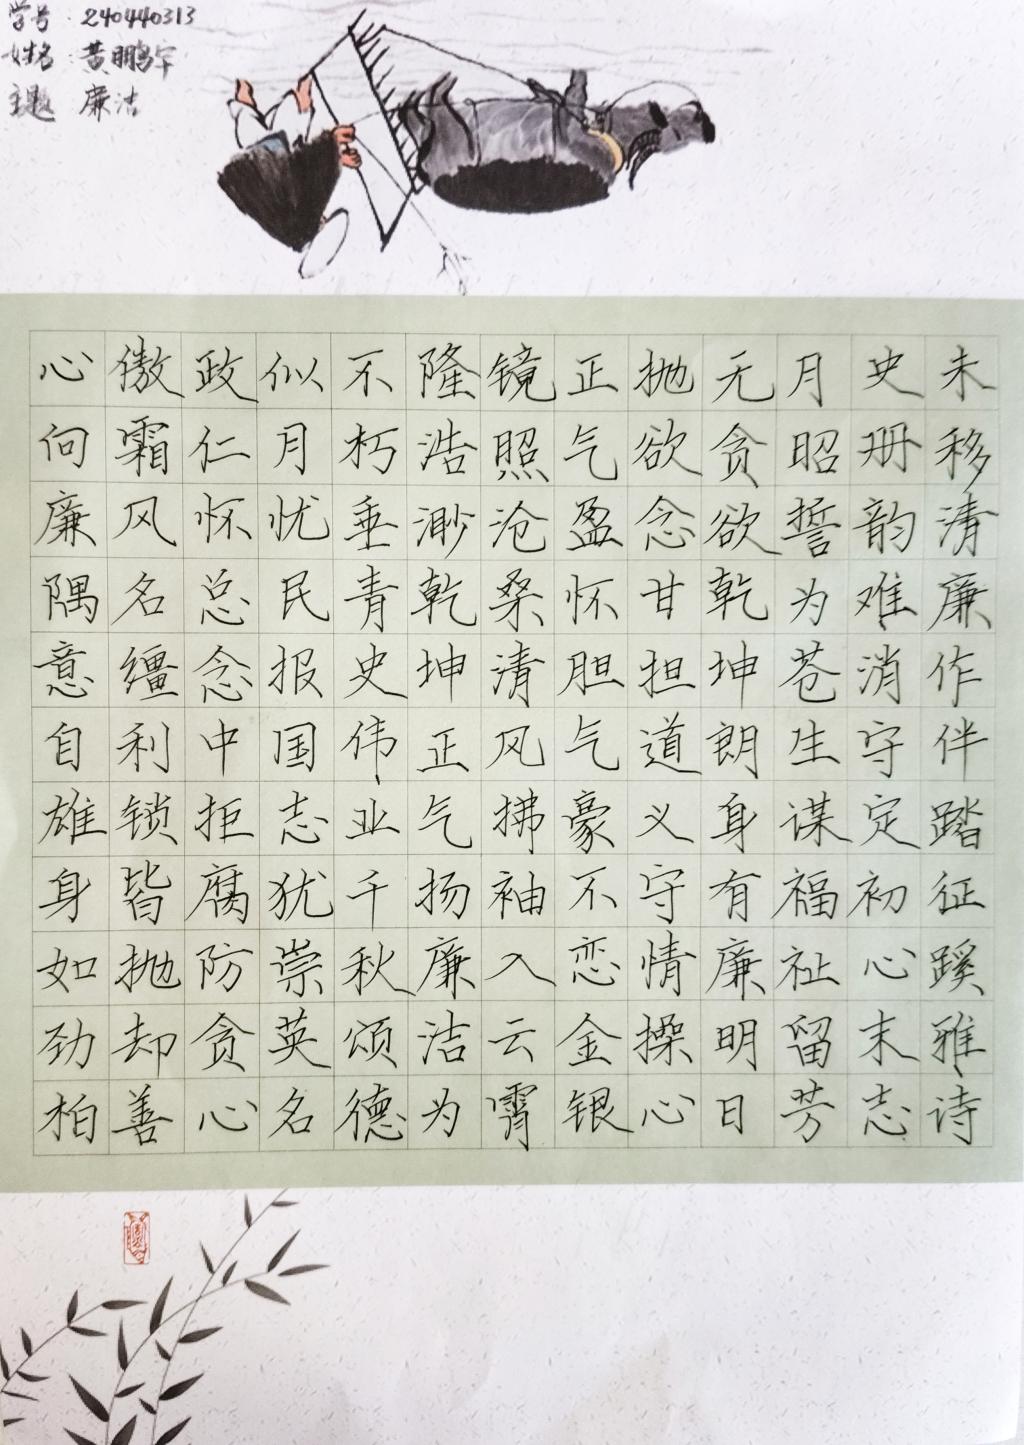 学号：240440313
姓名：黄鹏宇
主题 廉洁
心向廉隅意自雄身如劲柏
傲霜风名缰利锁皆抛却善
政仁怀总念中拒腐防贪心
似月忧民报国志犹崇英名
不朽垂青史伟业千秋颂德
隆浩渺乾坤正气扬廉洁为
镜照沧桑清风拂袖入云霄
正气盈怀胆气豪不恋金银
抛欲念甘担道义守情操心
无贪欲乾坤朗身有廉明日
月昭誓为苍生谋福祉留芳
史册韵难消守定初心末志
未移清廉作伴踏征蹊雅诗